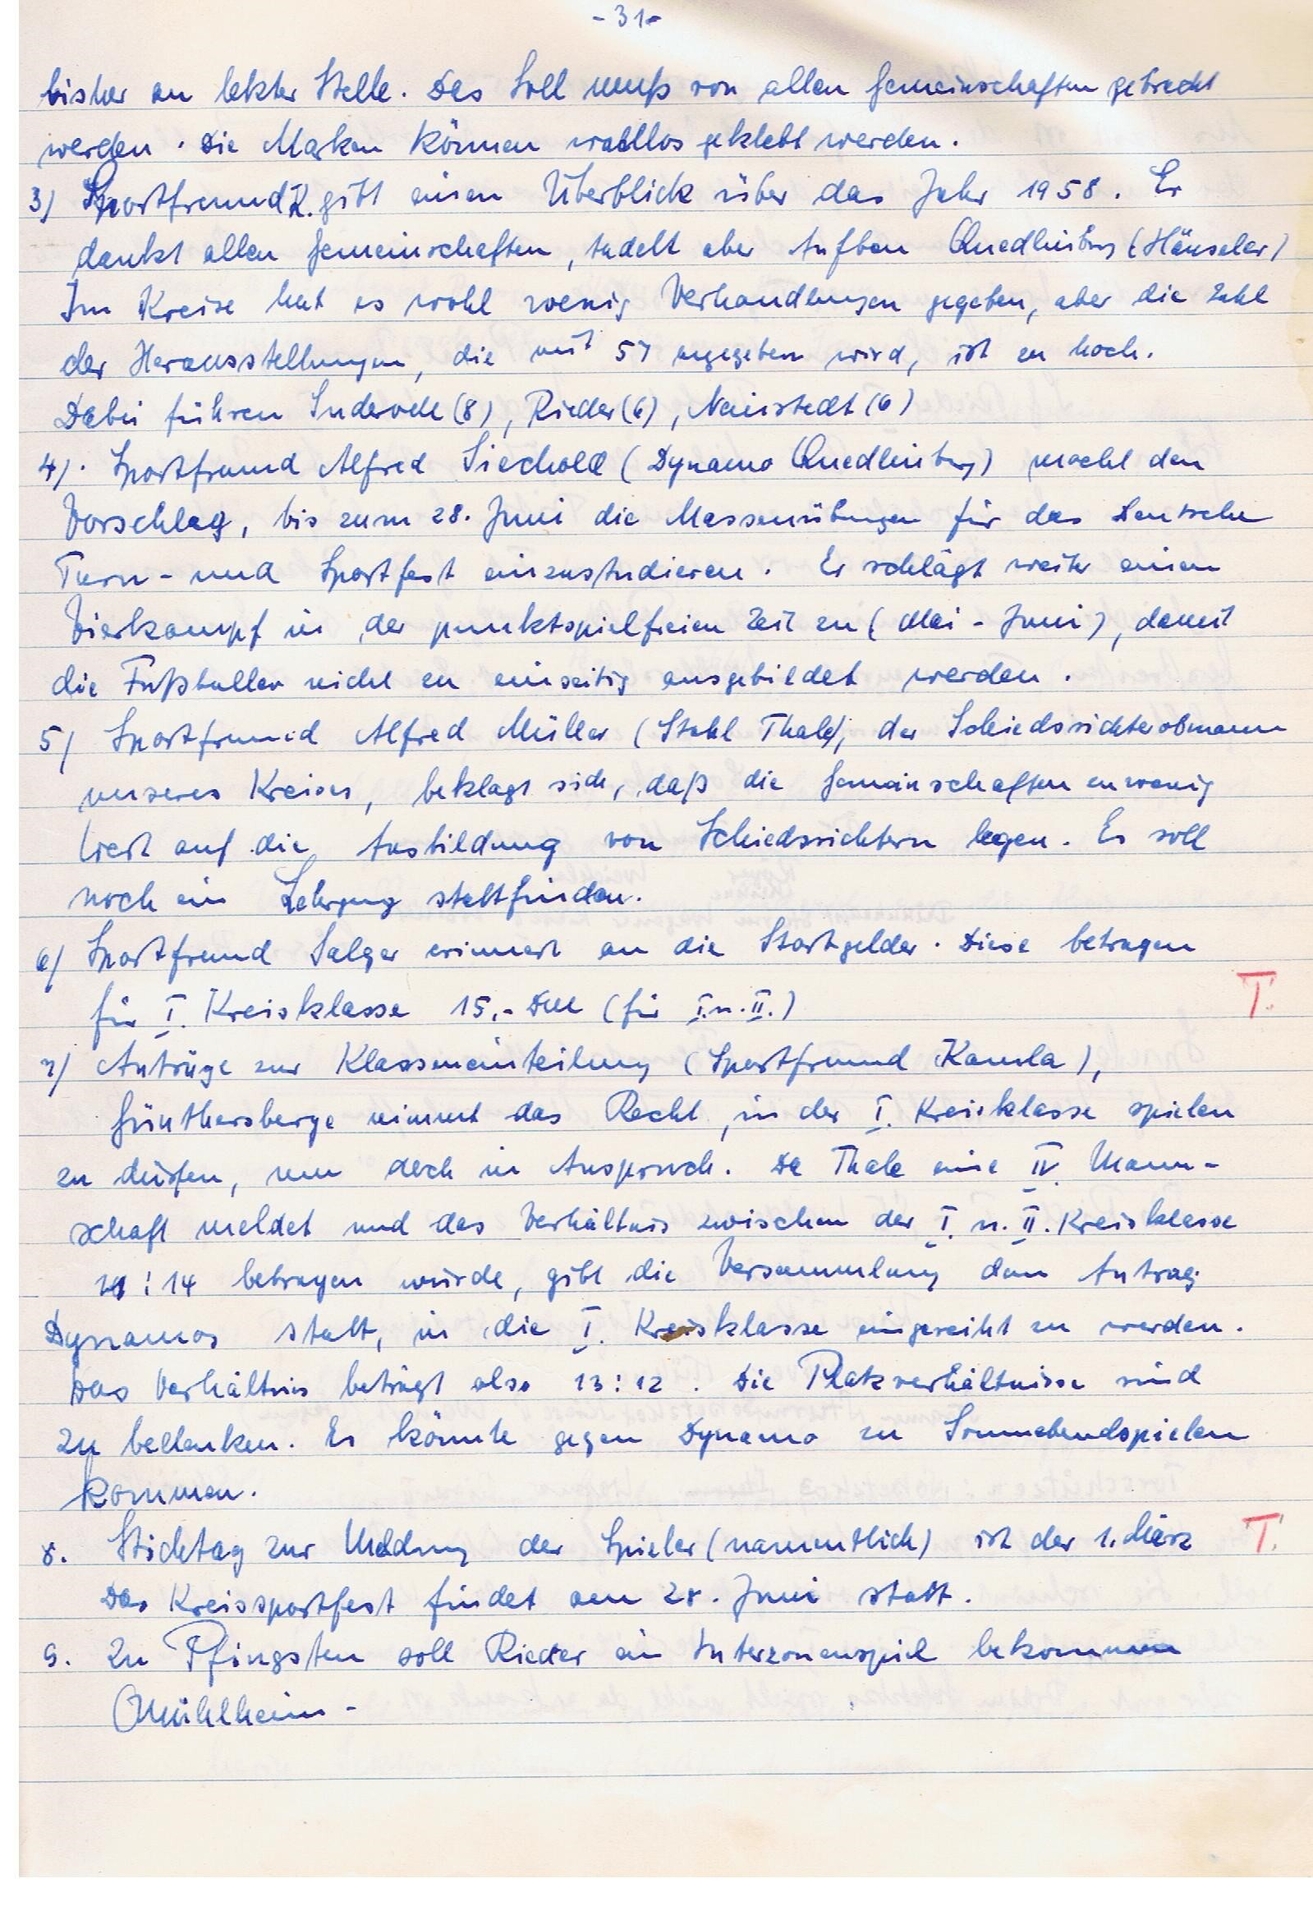 - 31 -
bisher an letzter Stelle. Das Soll muß von allen Gemeinschaften gebracht
werden. Die Marken können wahllos geklebt werden.
3) Sportfreund K. gibt einen Überblick über das Jahr 1958. Er
dankt allen Gemeinschaften, tadelt aber Aufbau Quedlinburg (Häuseler)
Im Kreise hat es wohl wenig Verhandlungen gegeben, aber die Zahl
der Herausstellungen, die mit 57 angegeben wird, ist zu hoch.
Dabei führen Suderode (8), Rieder (6), Neinstedt (6)
4). Sportfreund Alfred Siechold (Dynamo Quedlinburg) macht den
Vorschlag, bis zum 28. Juni die Massenübungen für das Deutsche
Turn- und Sportfest einzustudieren. Er schlägt weiter einen
Vierkampf in der punktspielfreien Zeit zu (Mai - Juni), damit
die Fußballer nicht zu einseitig ausgebildet werden.
5) Sportfreund Alfred Müller (Stahl Thale), der Schiedsrichterobmann
unseres Kreises, beklagt sich, daß die Gemeinschaften zu wenig
Wert auf die Ausbildung von Schiedsrichtern legen. Es soll
noch ein Lehrgang stattfinden.
6) Sportfreund Salger erinnert an die Startgelder. Diese betragen
für I. Kreisklasse 15,- DM (für I. u. II.) T.
7) Anträge zur Klasseneinteilung (Sportfreund Kamla),
Günthersberge nimmt das Recht, in der I. Kreisklasse spielen
zu dürfen, nun doch in Anspruch. Da Thale eine IV. Mann-
schaft meldet und das Verhältnis zwischen der I. u. II. Kreisklasse
: 14 betragen würde, gibt die Versammlung dem Antrag
Dynamos statt, in die I. Kreisklasse eingereiht zu werden.
Das Verhältnis beträgt also 13 : 12. Die Platzverhältnisse sind
zu bedenken. Es könnte gegen Dynamo zu Sonnabendspielen
kommen.
8. Stichtag zur Meldung der Spieler (namentlich) ist der 1. März T.
Das Kreissportfest findet am 28. Juni statt.
9. Zu Pfingsten soll Rieder ein Interzonenspiel bekommen
(Mühlheim -